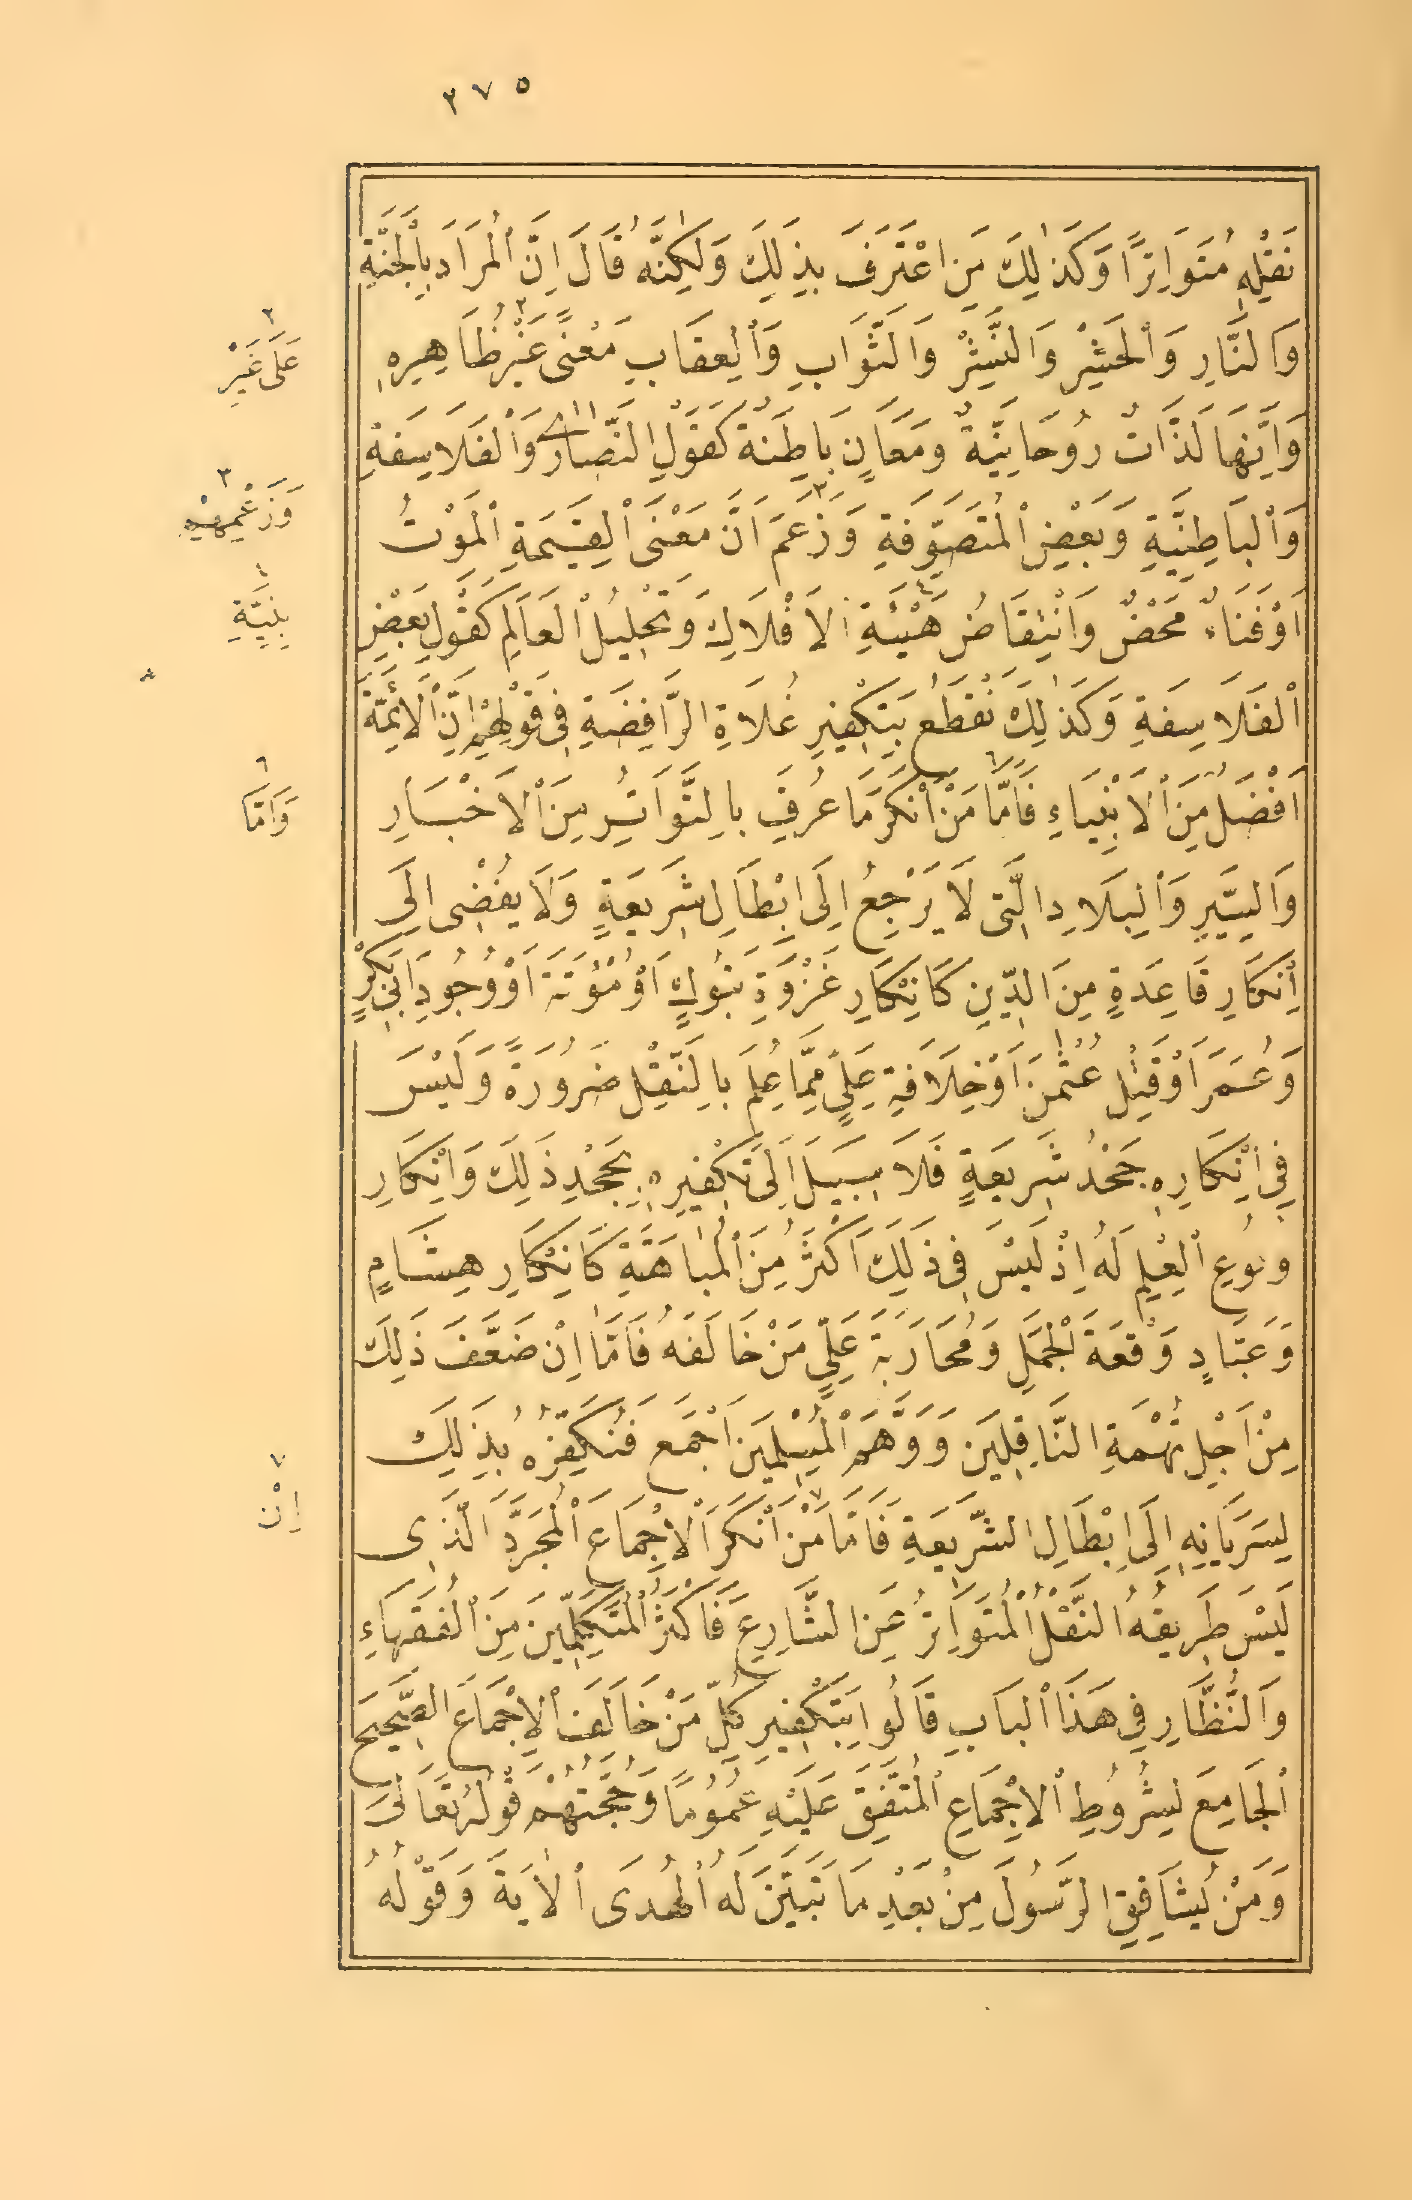 ٢٧٥
نَقْلِهِ مُتَوَاتِرًا وَكَذٰلِكَ مَنِ اعْتَرَفَ بِذٰلِكَ وَلٰكِنَّهُ قَالَ اِنَّ الْمُرَادَ بِالْجَنَّةِ
وَالنَّارِ وَالْحَشْرِ وَالنَّشْرِ وَالثَّوَابِ وَالْعِقَابِ مَعْنًى غَيْرُ٢ ظَاهِرِهِ
وَاِنَّهَا لَذَّاتٌ رُوحَانِيَّةٌ وَمَعَانٍ بَاطِنَةٌ كَقَوْلِ النَّصَارٰى وَالْفَلَاسِفَةِ
وَالْبَاطِنِيَّةِ وَبَعْضِ الْمُتَصَوِّفَةِ وَزَعَمَ٣ اَنَّ مَعْنَى الْقِيٰمَةِ الْمَوْتُ
اَوْ فَنَاءٌ مَحْضٌ وَانْتِقَاضُ هَيْئَةِ٤ الْاَفْلَاكِ وَتَحْلِيلُ الْعَالَمِ كَقَوْلِ بَعْضِ
الْفَلَاسِفَةِ وَكَذٰلِكَ نَقْطَعُ بِتَكْفِيرِ غُلَاةِ الرَّافِضَةِ فِي قَوْلِهِمْ اِنَّ الْاَئِمَّةَ
اَفْضَلُ مِنَ الْاَنْبِيَاءِ فَاَمَّا٦ مَنْ اَنْكَرَ مَا عُرِفَ بِالتَّوَاتُرِ مِنَ الْاَخْبَارِ
وَالسِّيَرِ وَالْبِلَادِ الَّتِى لَا يَرْجِعُ اِلَى اِبْطَالِ شَرِيعَةٍ وَلَا يُفْضِى اِلَى
اِنْكَارِ قَاعِدَةٍ مِنَ الدِّينِ كَاِنْكَارِ غَزْوَةِ تَبُوكٍ اَوْ مُؤْتَةَ اَوْ وُجُودِ اَبِى بَكْرٍ
وَعُمَرَ اَوْ قَتْلِ عُثْمٰنَ اَوْ خِلَافَةِ عَلِيٍّ مِمَّا عُلِمَ بِالنَّقْلِ ضَرُورَةً وَلَيْسَ
فِى اِنْكَارِهِ جَحْدُ شَرِيعَةٍ فَلَا سَبِيلَ اِلَى تَكْفِيرِهِ بِجَحْدِ ذٰلِكَ وَاِنْكَارِ
وُقُوعِ الْعِلْمِ لَهُ اِذْ لَيْسَ فِى ذٰلِكَ اَكْثَرُ مِنَ الْمُبَاهَتَةِ كَاِنْكَارِ هِشَامٍ
وَعَبَّادٍ وَقْعَةَ الْجَمَلِ وَمُحَارَبَةَ عَلِيٍّ مَنْ خَالَفَهُ فَاَمَّا اِنْ ضَعَّفَ ذٰلِكَ
مِنْ اَجْلِ تُهْمَةِ النَّاقِلِينَ وَوَهَّمَ الْمُسْلِمِينَ اَجْمَعَ فَنُكَفِّرُهُ بِذٰلِكَ
لِسَرَيَانِهِ اِلَى اِبْطَالِ الشَّرِيعَةِ فَاَمَّا مَنْ٧ اَنْكَرَ الْاِجْمَاعَ الْمُجَرَّدَ الَّذِى
لَيْسَ طَرِيقُهُ النَّقْلُ الْمُتَوَاتِرُ عَنِ الشَّارِعِ فَاَكْثَرُ الْمُتَكَلِّمِينَ مِنَ الْفُقَهَاءِ
وَالنُّظَّارِ فِى هٰذَا الْبَابِ قَالُوا بِتَكْفِيرِ كُلِّ مَنْ خَالَفَ الْاِجْمَاعَ الصَّحِيحَ
الْجَامِعَ لِشُرُوطِ الْاِجْمَاعِ الْمُتَّفَقَ عَلَيْهِ عُمُومًا وَحُجَّتُهُمْ قَوْلُهُ تَعَالٰى
وَمَنْ يُشَاقِقِ الرَّسُولَ مِنْ بَعْدِ مَا تَبَيَّنَ لَهُ الْهُدَى الْاٰيَةَ وَقَوْلُهُ
٢
عَلَى غَيْرِ
٣
وَزَعْمِهِمْ
٤
بِنْيَةِ
٦
وَاَمَّا
٧
اِنْ